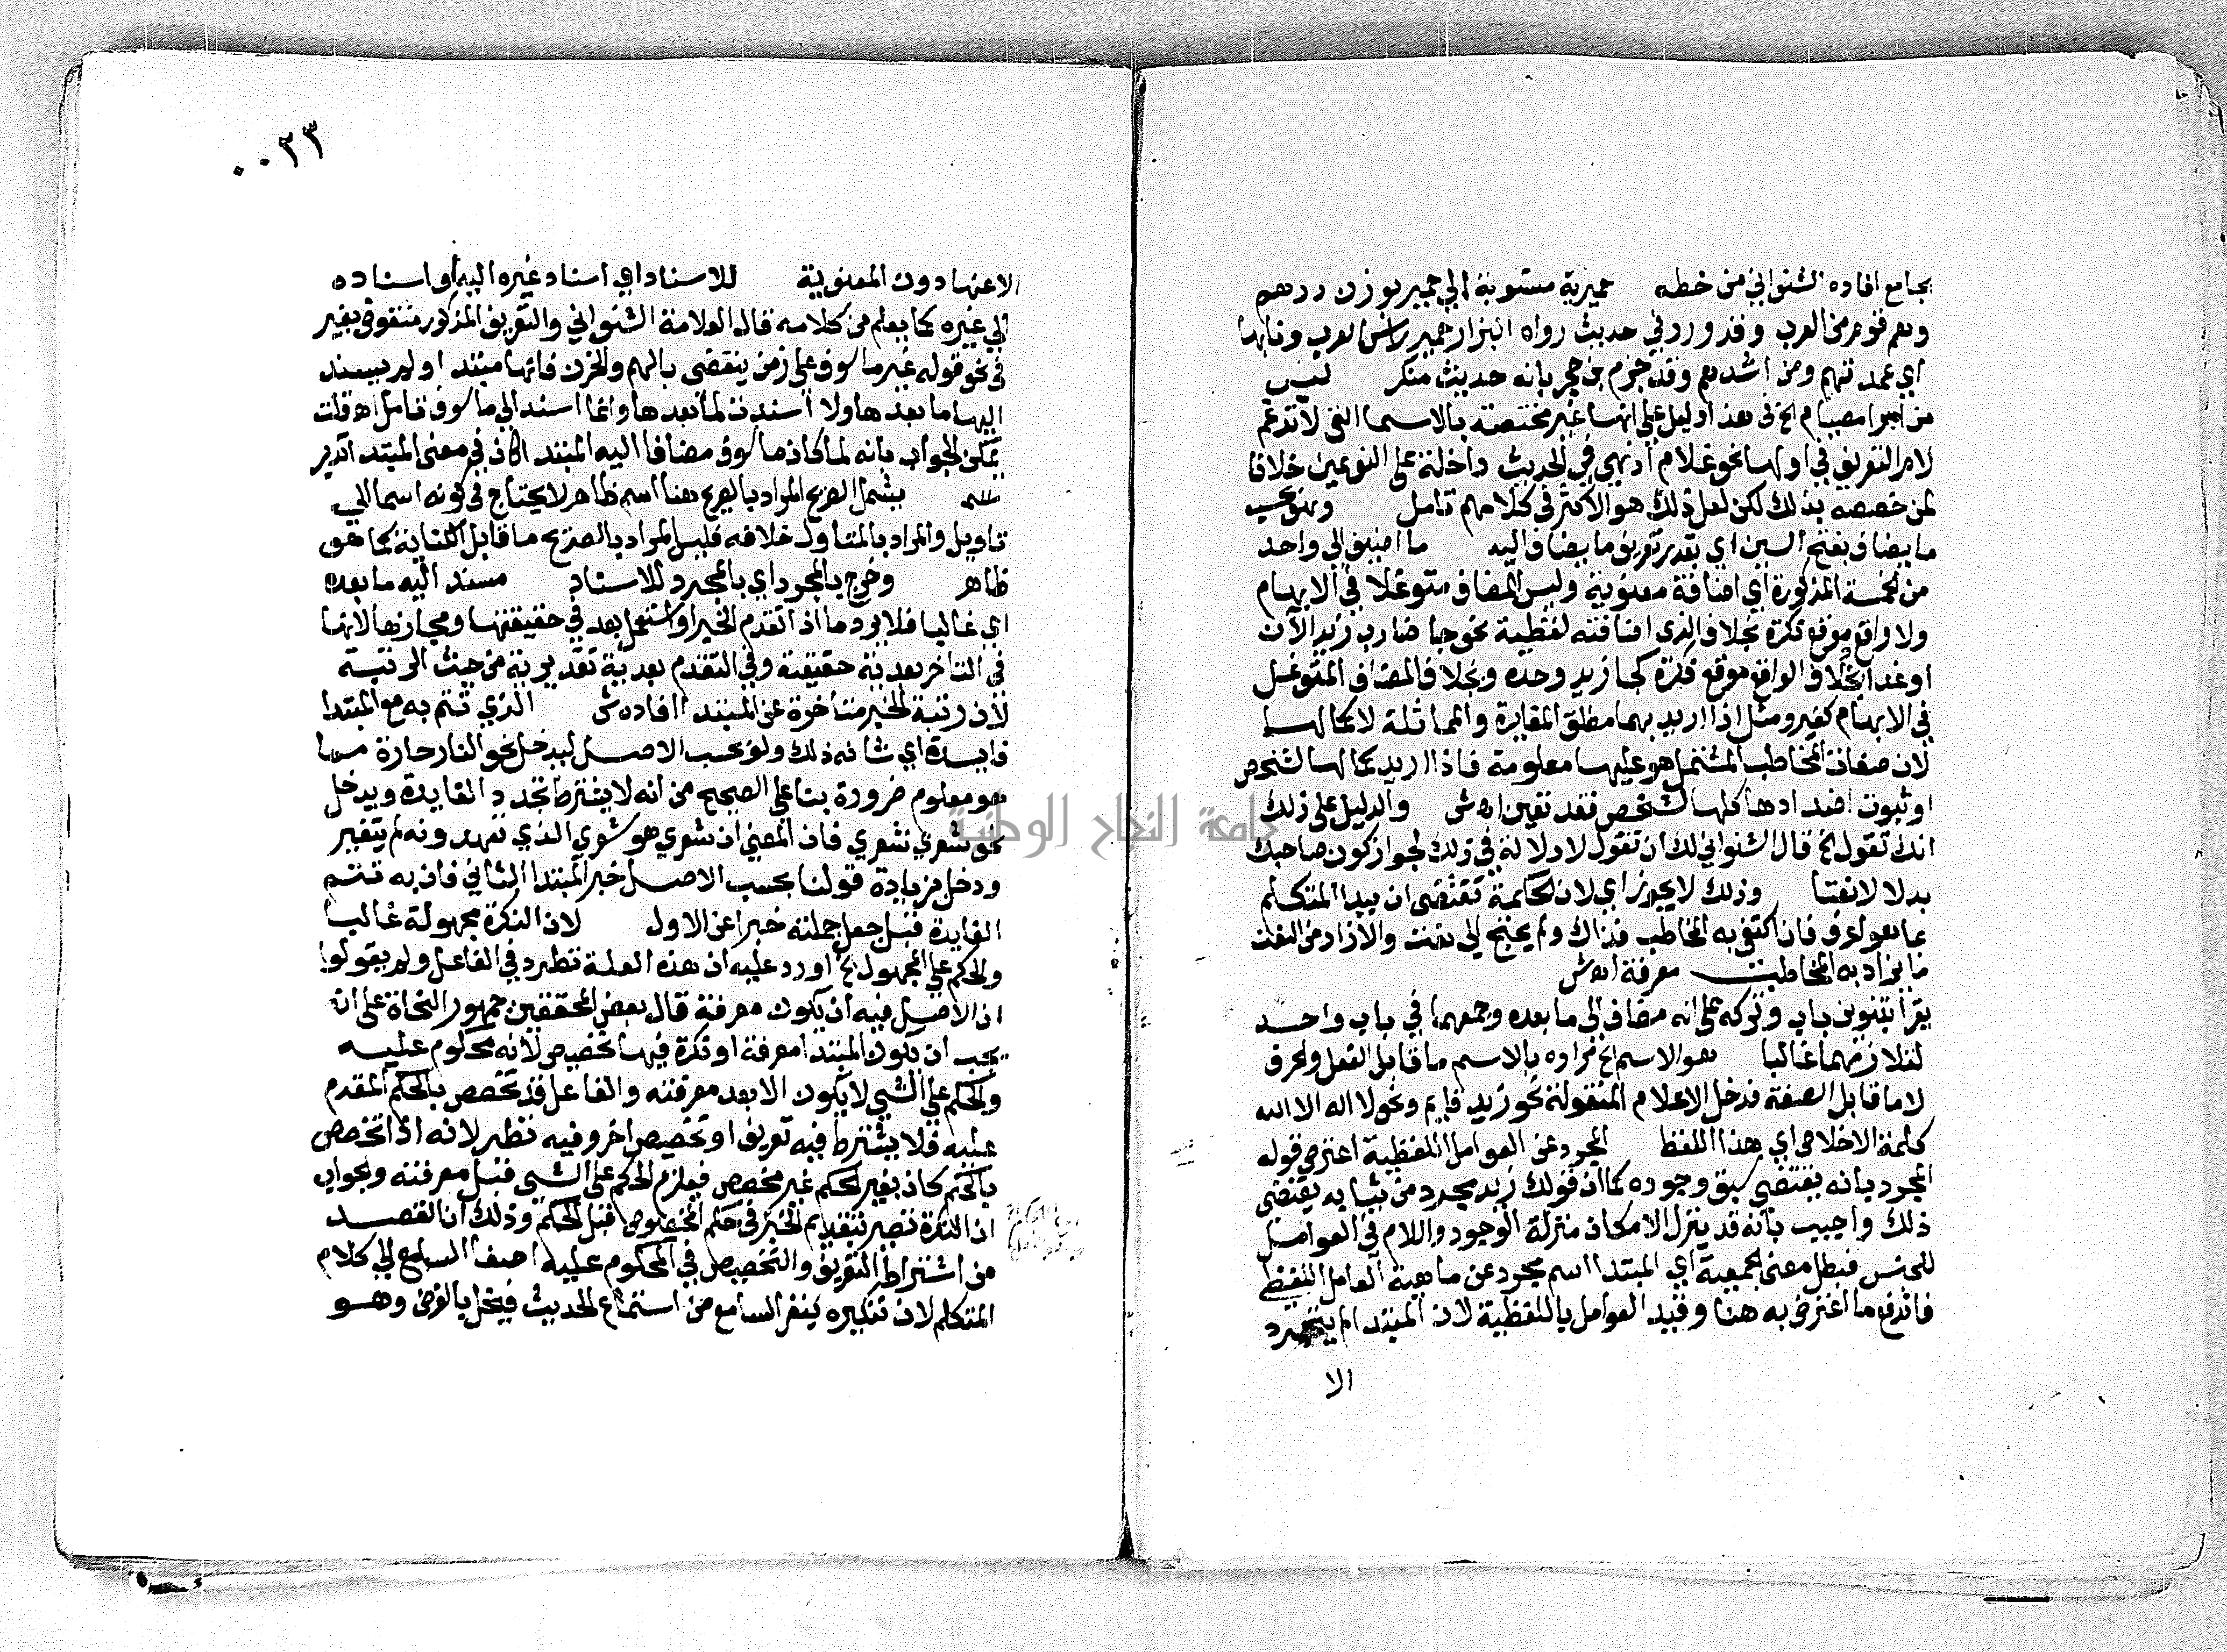 بجامع افاده الشنواني من خطه حميرية منسوبة الي حمير بوزن درهم
وهم قوم من العرب وقد ورد في حديث رواه البزار حمير راس العرب ونابها
اي عمدتهم ومن اشدهم وقد جزم بن حجر بانه حديث منكر ليس
من امبر امصيام الخ في هذا دليل علي انها غير مختصة بالاسما التي لا تدغم
لام التعريف في اولها نحو غلام اذ هي في الحديث داخلة علي النوعين خلافا
لمن خصصه بذلك لكن لعل ذلك هو الاكثر في كلامهم تامل وهو بحسب
ما يضاف بفتح السين اي بقدر تعريف ما يضاف اليه ما اضيف الي واحد
من الخمسة المذكورة اي اضافة معنوية وليس المضاف متوغلا في الابهام
ولا واقع موقع نكرة بخلاف الذي اضافته لفظية نحو جا ضارب زيد الآن
او غدا بخلاف الواقع موقع نكرة كجا زيد وحده وبخلاف المضاف المتوغل
في الابهام كغير ومثل اذا اريد بهما مطلق المغايرة والمماثلة لا كمالها
لان صفات المخاطب المشتمل هو عليها معلومة فاذا اريد كمالها لشخص
او ثبوت اضدادها كلها لشخص فقد تعين اه ش والدليل علي ذلك
انك تقول الخ قال الشنواني لك ان تقول لا دلالة في ذلك لجواز كون صاحبك
بدلا لا نعتا وذلك لا يجوز اي لان الحكمة تقتضي ان يبدا المتكلم
بما هو اعرف فان اكتفي به المخاطب فذاك ولم يحتج الي نعت والا زاد من النعت
ما يزاد به المخاطب معرفة اه ش
يقرا بتنوين باب وتركه علي انه مضاف الي ما بعده وجمعهما في باب واحد
لتلازمهما غالبا هو الاسم الخ مراده بالاسم ما قابل الفعل والحرف
لا ما قابل الصفة فدخل الاعلام المنقولة نحو زيد قايم ونحو لا اله الا الله
كلمة الاخلاص اي هذا اللفظ المجرد عن العوامل اللفظية اعترض قوله
المجرد بانه يقتضي سبق وجوده كما ان قولك زيد مجرد من ثيابه يقتضي
ذلك واجيب بانه قد ينزل الامكان منزلة الوجود واللام في العوامل
للجنس فبطل معني الجمعية اي المبتدا اسم مجرد عن ماهية العامل اللفظي
فاندفع ما اعترض به هنا وقيد العوامل باللفظية لان المبتدا لم يتجرد
الا
٠٠٢٣
الا عنها دون المعنوية للاسناد اي اسناد غيره اليه او اسناده
الي غيره كما يعلم من كلامه قال العلامة الشنواني والتعريف المذكور منقوض بغير
في نحو قوله غير ماسوف علي زمن ينقضي بالهم والحزن فانها مبتدا ولم يسند
اليها ما بعدها ولا اسندت لما بعدها وانما اسند الي ماسوف تامل اه قلت
يمكن الجواب بانه لما كان ماسوف مضافا اليه المبتدا كان في معني المبتدا
يشمل الصريح المراد بالصريح هنا اسم ظاهر لا يحتاج في كونه اسما الي
تاويل والمراد بالمتاول خلافه فليس المراد بالصريح ما قابل الكناية كما هو
ظاهر وخرج بالمجرد اي بالمجرد للاسناد مسند اليه ما بعده
اي غالبا فلا يرد ما اذا تقدم الخبر او استعمل بعد في حقيقتها ومجازها لانها
في التاخر بعدية حقيقة وفي التقدم بعدية تقديرية من حيث الرتبة
لان رتبة الخبر متاخرة عن المبتدا افاده ش الذي تتم به مع المبتدا
فايدة اي شانه ذلك ولو بحسب الاصل ليدخل نحو النار حارة مما
هو معلوم ضرورة بنا علي الصحيح من انه لا يشترط تجدد الفايدة ويدخل
نحو شعري شعري فان المعني ان شعري هو شعري الذي تعهدونه لم يتغير
ودخل من زيادة قولنا بحسب الاصل خبر المبتدا الثاني فان به تتم
الفايدة قبل جعل جملته خبرا عن الاول لان النكرة مجهولة غالبا
والحكم علي المجهول الخ اورد عليه ان هذه العلة تطرد في الفاعل ولم يقولوا
ان الاصل فيه ان يكون معرفة قال بعض المحققين جمهور النحاة علي ان
يجب ان يكون المبتدا معرفة او نكرة فيها تخصيص لانه محكوم عليه
والحكم علي الشي لا يكون الا بعد معرفته والفاعل قد تخصص بالحكم المقدم
عليه فلا يشترط فيه تعريف او تخصيص اخر وفيه نظر لانه اذا تخصص
بالحكم كان بغير الحكم غير مخصص فيلزم الحكم علي الشي قبل معرفته والجواب
ان النكرة تصير بتقديم الخبر في حكم المخصوص قبل الحكم وذلك ان القصد
من اشتراط التعريف والتخصيص في المحكوم عليه اصغا السامع الي كلام
المتكلم لان تنكيره ينفر السامع من استماع الحديث فيخل بالغرض وهو
جامعة النجاح الوطنية